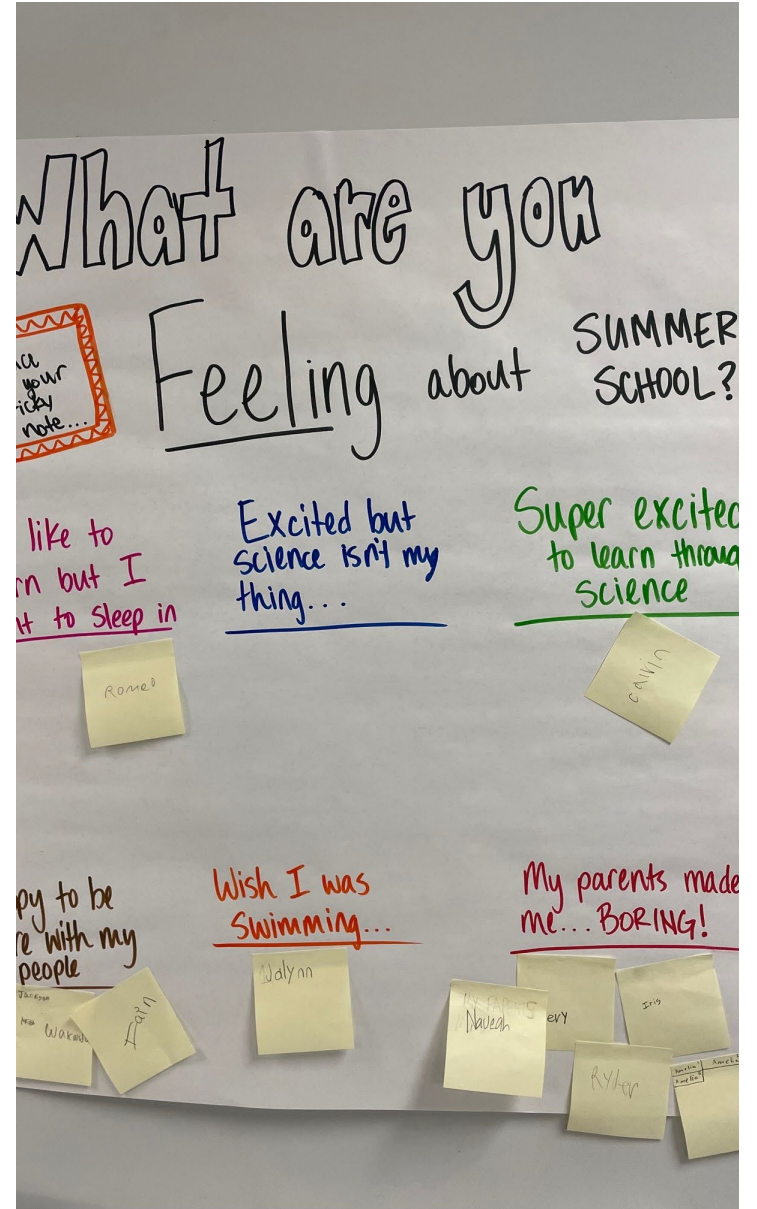 What are you
Feeling about SUMMER
SCHOOL?
your
note...
like to
rn but I
to sleep in
Romeo
Excited but
science isn't my
thing...
Super excited
to learn throug
science
calvin
py to be
re with my
people
Jackson
Wakanda
Wish I was
Swimming...
Jalynn
My parents made
me... BORING!
Naveah
ery
Iris
Ryker
Amelia Amelia
Amelia